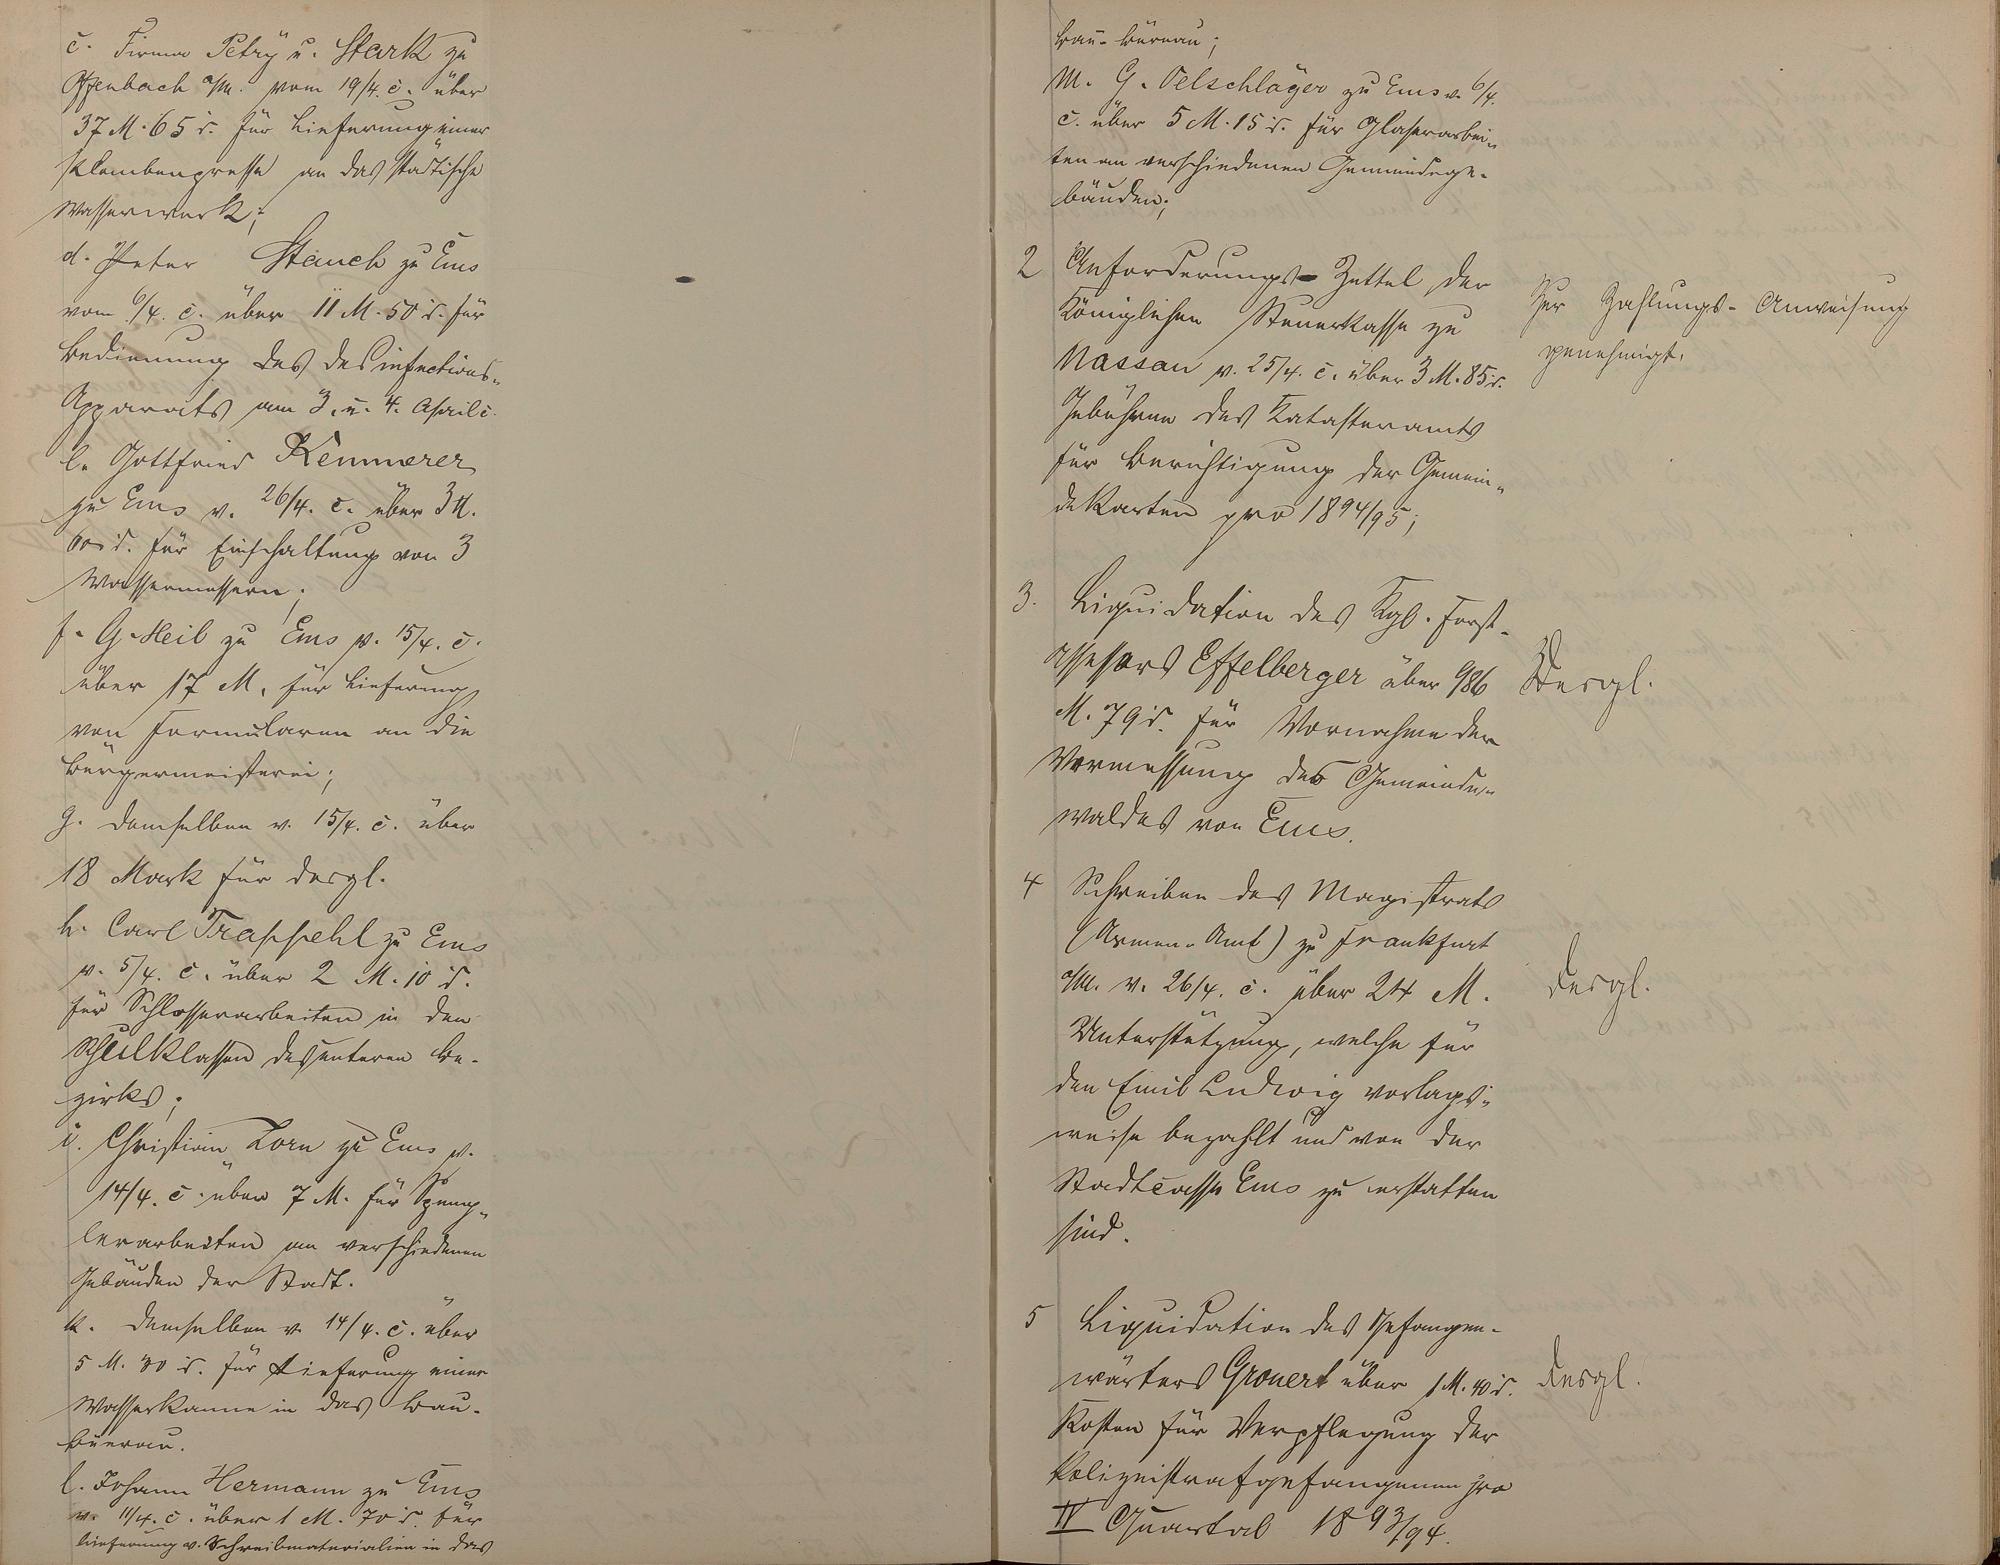 c. Firma Petry u. Stark zu
Offenbach a/M. vom 19/4. c. über
37 M. 65 d. für Lieferung einer
Plombenpresse an das städtische
Wasserwerk;
d. Peter Stauch zu Ems
vom 6/4. c. über 11 M. 50 d. für
Bedienung des Desinfections-
Apparats am 3. u. 4. April c.
e. Gottfried Kemmerer
zu Ems v. 26/4. c. über 3 M.
60 d. für Einschaltung von 3
Wassermessern;
f. G. Heil zu Ems v. 15/4. c.
über 17 M. für Lieferung
von Formularen an die
Bürgermeisterei;
g. demselben v. 15/4. c. über
18 Mark für desgl.
h. Carl Trapphehl zu Ems
v. 5/4. c. über 2 M. 10 d.
für Schlosserarbeiten in den
Schulklassen des unteren Be-
zirks;
i. Christian Zorn zu Ems v.
14/4. c. über 7 M. für Speng-
lerarbeiten an verschiedenen
Gebäuden der Stadt.
k. demselben v. 14/4. c. über
5 M. 30 d. für Lieferung einer
Wasserkanne in das Bau-
büerau.
l. Johann Hermann zu Ems
v. 11/4. c. über 1 M. 70 d. für
Lieferung v. Schreibmaterialien in das
Bau-Büreau;
M. G. Oelschläger zu Ems v. 6/4.
c. über 5 M. 15 d. für Glaserarbei-
ten an verschiedenen Gemeindege-
bäuden;
2 Anforderungs-Zettel der
Königlichen Steuerkasse zu
Nassau v. 25/4. c. über 3 M. 85 d.
Gebühren des Katasteramts
für Berichtigung der Gemein-
dekarten pro 1894/95;
Zur Zahlungs-Anweisung
genehmigt.
3. Liquidation des Kgl. Forst-
assesors Effelberger über 986
M. 79 d. für Vornahme der
Vermessung des Gemeinde-
waldes von Ems.
Desgl.
4 Schreiben des Magistrats
(Armen-Amt) zu Frankfurt
a/M. v. 26/4. c. über 24 M.
Unterstützung, welche für
den Emil Ludwig vorlags-
weise bezahlt und von der
Stadtcasse Ems zu erstatten
sind.
desgl.
5 Liquidation des Gefangen-
wärters Gronert über 1 M. 40 d.
Kosten für Verpflegung der
Polizeistrafgefangenen pro
IV Quartal 1893/94.
desgl.